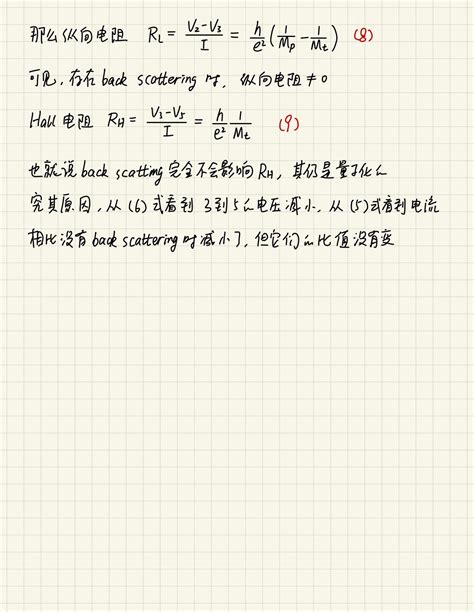 那么纵向电阻 R_L = (V₂-V₃)/I = h/e² (1/M_p - 1/M_t) (8)
可见，存在 back scattering 时，纵向电阻 ≠ 0
Hall 电阻 R_H = (V₃-V₅)/I = h/e² 1/M_t (9)
也就说 back scatting 完全不会影响 R_H，其仍是量子化的
究其原因，从 (6) 式看到 3 到 5 的电压减小，从 (5) 式看到电流
相比没有 back scattering 时减小了，但它们的比值没有变